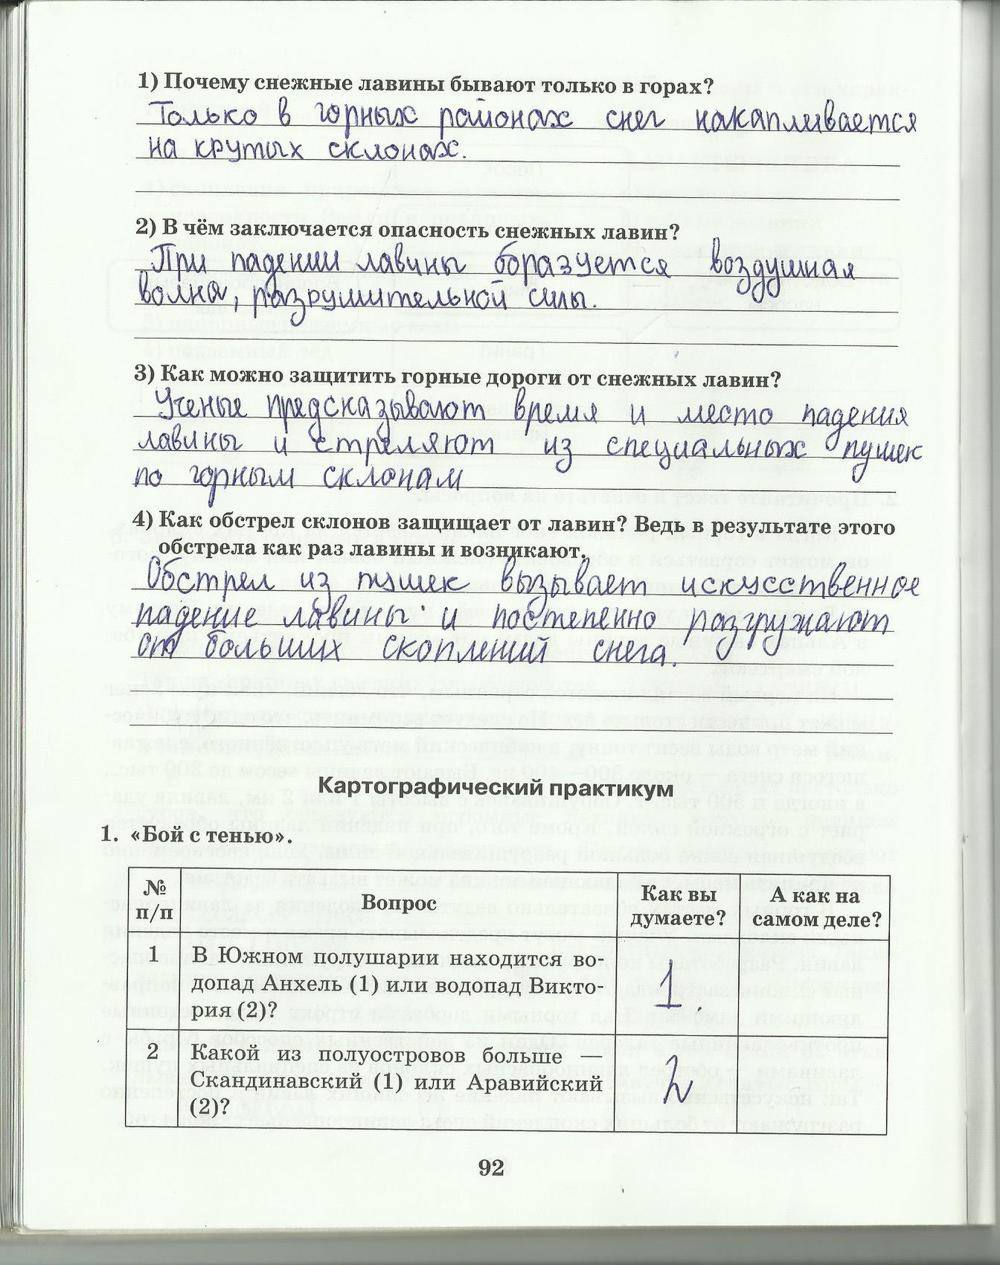 1) Почему снежные лавины бывают только в горах?
Только в горных районах снег накапливается
на крутых склонах.
2) В чём заключается опасность снежных лавин?
При падении лавины боразуется воздушная
волна, разрушительной силы.
3) Как можно защитить горные дороги от снежных лавин?
Ученые предсказывают время и место падения
лавины и стреляют из специальных пушек
по горным склонам
4) Как обстрел склонов защищает от лавин? Ведь в результате этого
обстрела как раз лавины и возникают.
Обстрел из пушек вызывает искусственное
падение лавины и постепенно разгружают
от больших скоплений снега.
Картографический практикум
1. «Бой с тенью».
№ п/п
Вопрос
Как вы думаете?
А как на самом деле?
1
В Южном полушарии находится во-
допад Анхель (1) или водопад Викто-
рия (2)?
1
2
Какой из полуостровов больше —
Скандинавский (1) или Аравийский
(2)?
2
92